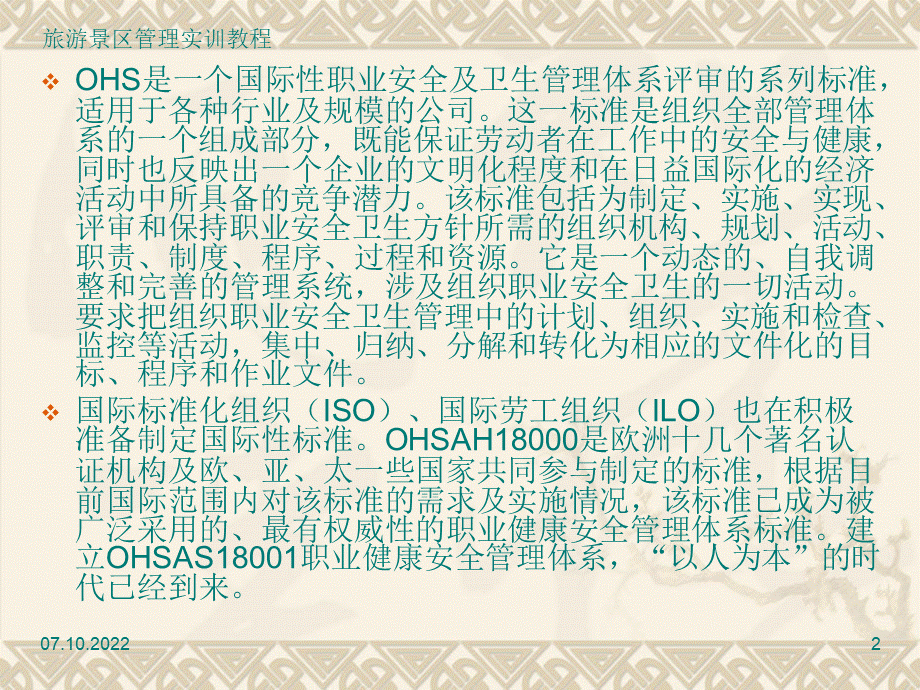 旅游景区管理实训教程
OHS是一个国际性职业安全及卫生管理体系评审的系列标准，
适用于各种行业及规模的公司。这一标准是组织全部管理体
系的一个组成部分，既能保证劳动者在工作中的安全与健康，
同时也反映出一个企业的文明化程度和在日益国际化的经济
活动中所具备的竞争潜力。该标准包括为制定、实施、实现、
评审和保持职业安全卫生方针所需的组织机构、规划、活动、
职责、制度、程序、过程和资源。它是一个动态的、自我调
整和完善的管理系统，涉及组织职业安全卫生的一切活动。
要求把组织职业安全卫生管理中的计划、组织、实施和检查、
监控等活动，集中、归纳、分解和转化为相应的文件化的目
标、程序和作业文件。
国际标准化组织（ISO）、国际劳工组织（ILO）也在积极
准备制定国际性标准。OHSAH18000是欧洲十几个著名认
证机构及欧、亚、太一些国家共同参与制定的标准，根据目
前国际范围内对该标准的需求及实施情况，该标准已成为被
广泛采用的、最有权威性的职业健康安全管理体系标准。建
立OHSAS18001职业健康安全管理体系，“以人为本”的时
代已经到来。
07.10.2022
2